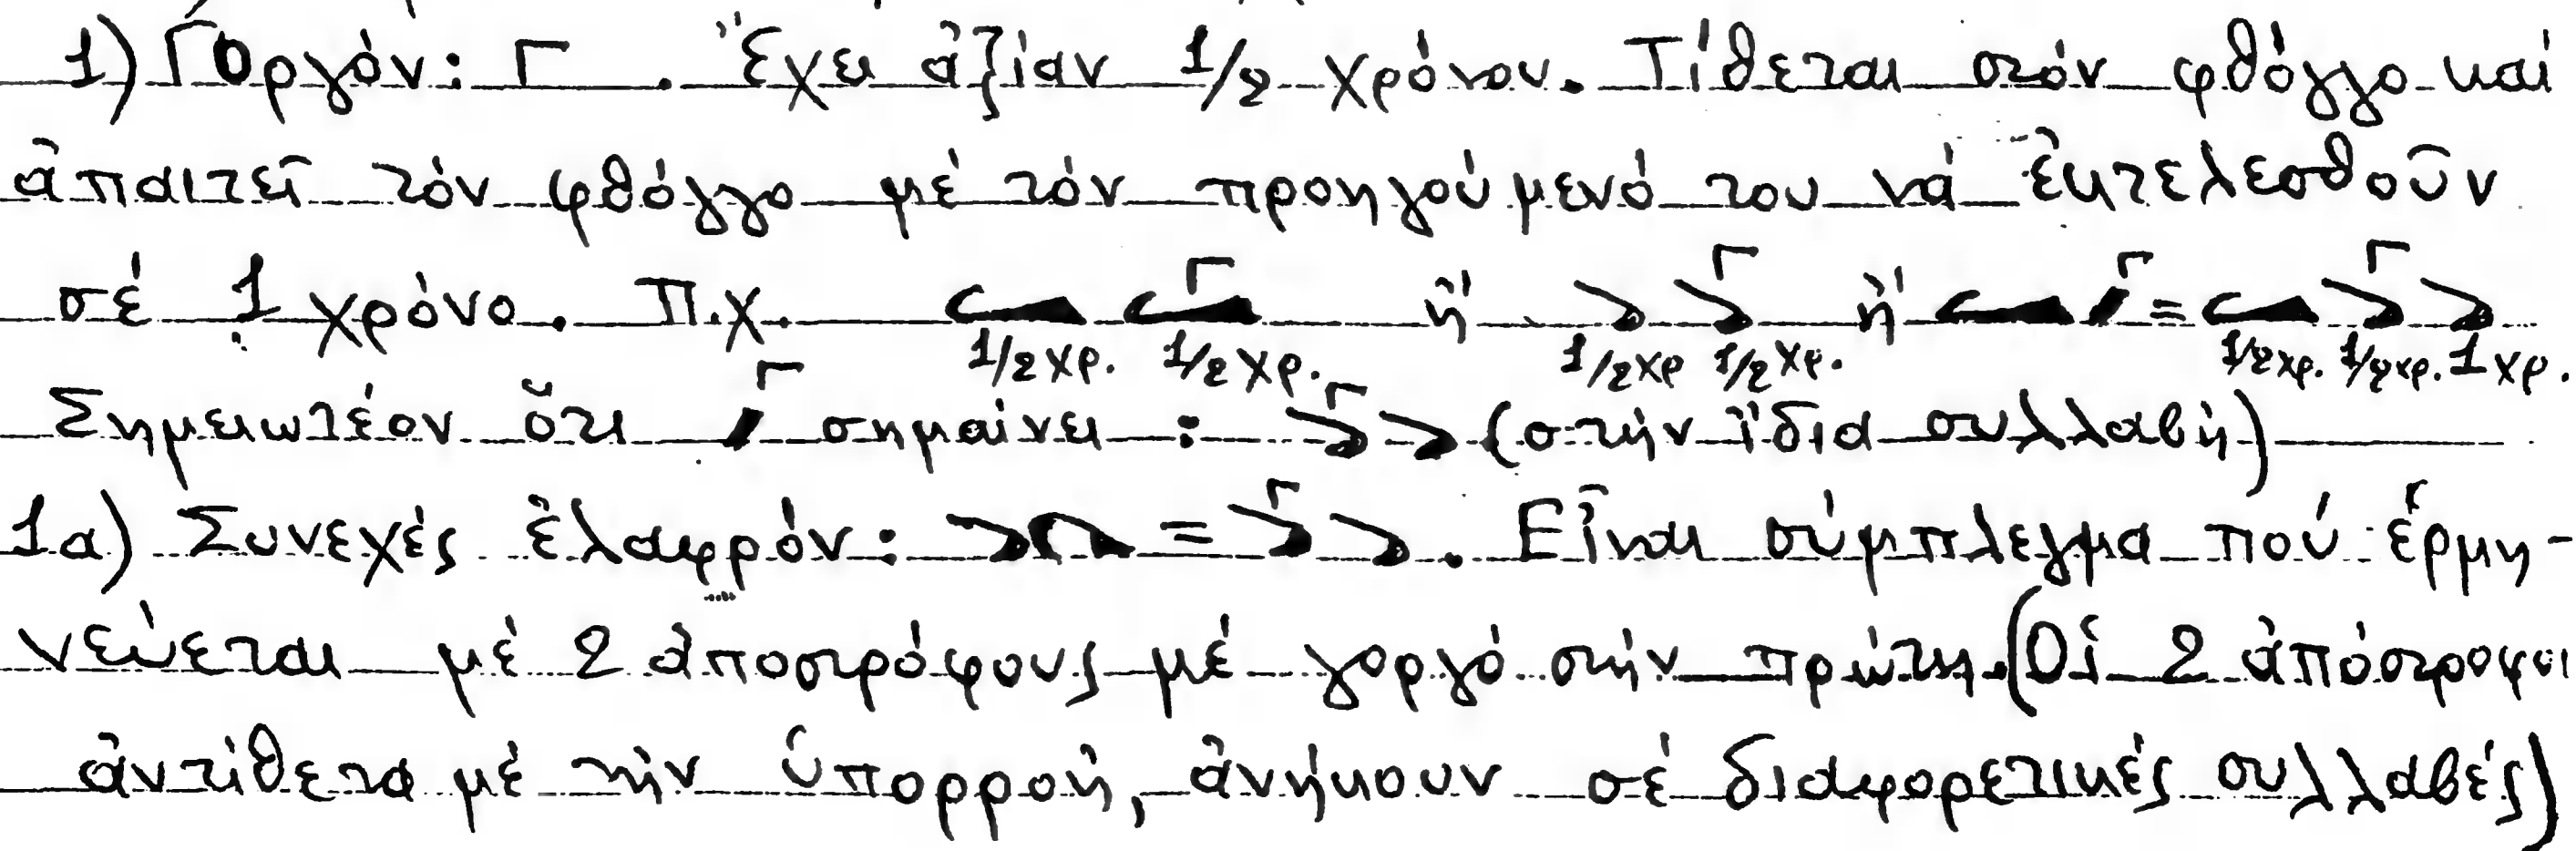 1) Γοργόν: Γ . Ἔχει ἀξίαν 1/2 χρόνου. Τίθεται στόν φθόγγο καί
ἀπαιτεῖ τόν φθόγγο μέ τόν προηγούμενό του νά ἐκτελεσθοῦν
σέ 1 χρόνο. Π.χ. ἤ ἤ =
1/2 χρ. 1/2 χρ. 1/2 χρ 1/2 χρ. 1/2 χρ. 1/2 χρ. 1 χρ.
Σημειωτέον ὅτι σημαίνει : (στήν ἴδια συλλαβή)
1α) Συνεχές ἐλαφρόν: = . Εἶναι σύμπλεγμα πού ἑρμη-
νεύεται μέ 2 ἀποστρόφους μέ γοργό στήν πρώτη. (Οἱ 2 ἀπόστροφοι
ἀντίθετα μέ τήν ὑπορροή, ἀνήκουν σέ διαφορετικές συλλαβές)